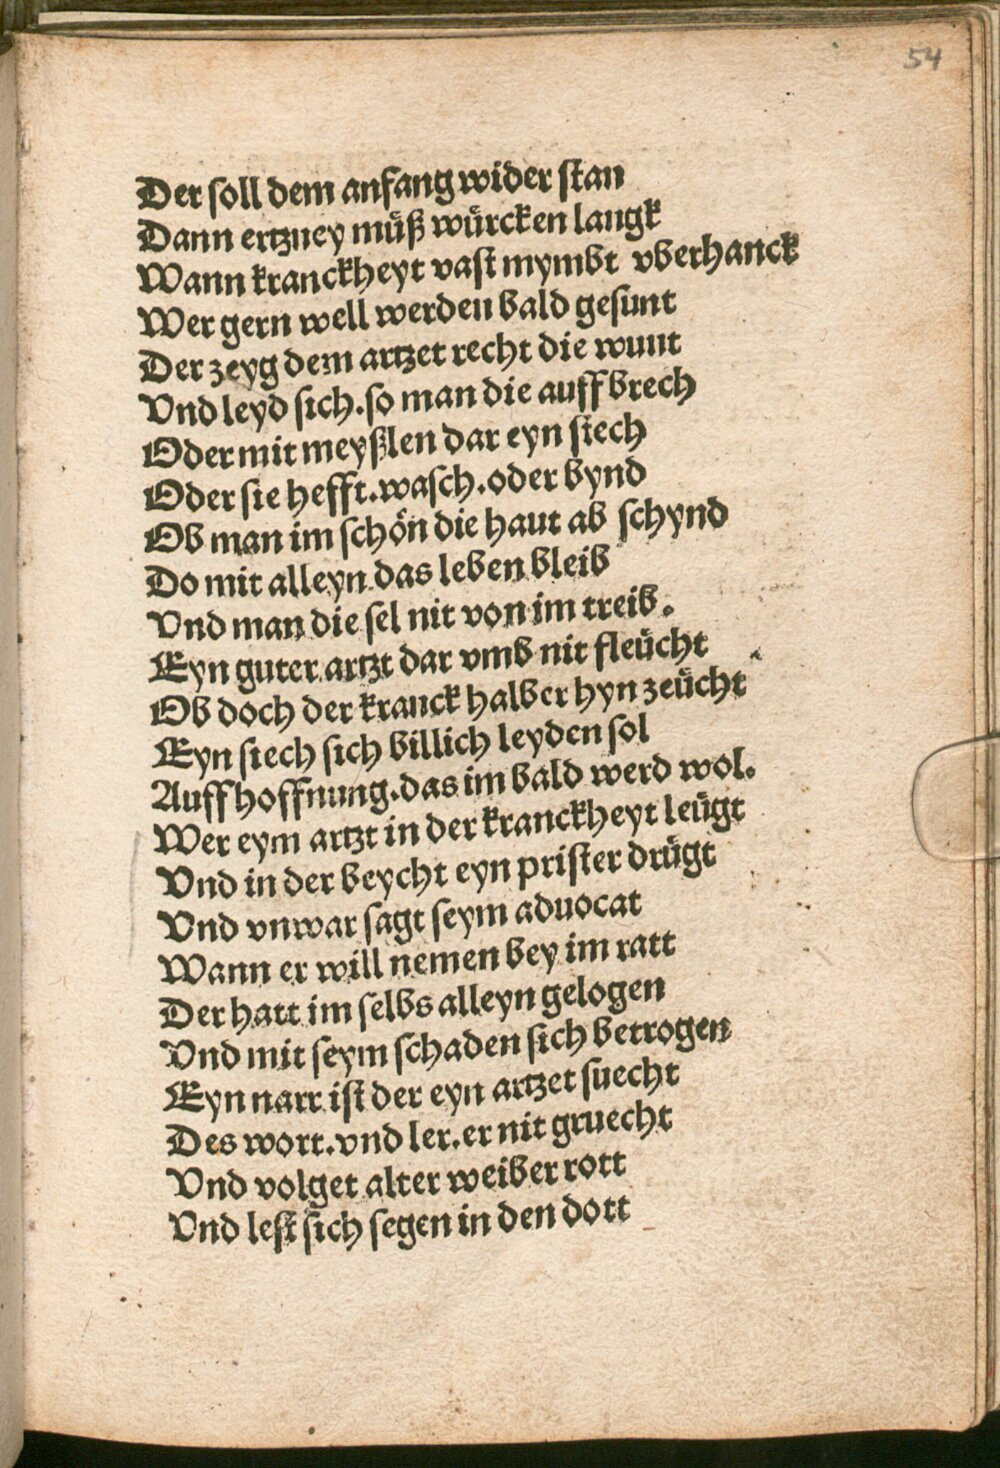 54
Der soll dem anfang wider stan
Dann ertzney müß würcken langk
Wann kranckheyt vast nymbt vberhanck
Wer gern well werden bald gesunt
Der zeyg dem artzet recht die wunt
Vnd leyd sich. so man die auffbrech
Oder mit meyßlen dar eyn stech
Oder sie hefft. wasch. oder bynd
Ob man im schön die haut ab schynd
Do mit alleyn das leben bleib
Vnd man die sel nit von im treib.
Eyn guter artzt dar vmb nit fleücht
Ob doch der kranck halber hyn zeücht
Eyn siech sich billich leyden sol
Auff hoffnung. das im bald werd wol.
Wer eym artzt in der kranckheyt leügt
Vnd in der beycht eyn prister drügt
Vnd vnwar sagt seym aduocat
Wann er will nemen bey im ratt
Der hatt im selbs alleyn gelogen
Vnd mit seym schaden sich betrogen
Eyn narr ist der eyn artzet suecht
Des wort. vnd ler. er nit gruecht
Vnd volget alter weiber rott
Vnd lest sich segen in den dott